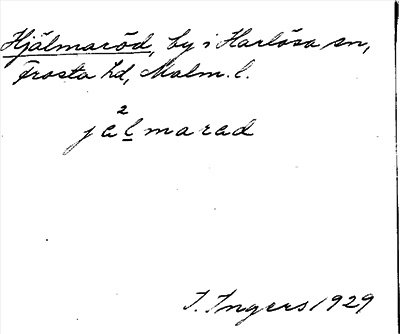 Hjälmaröd, by i Harlösa sn,
Frosta hd, Malm. l.
2
jälmarad
I. Ingers 1929